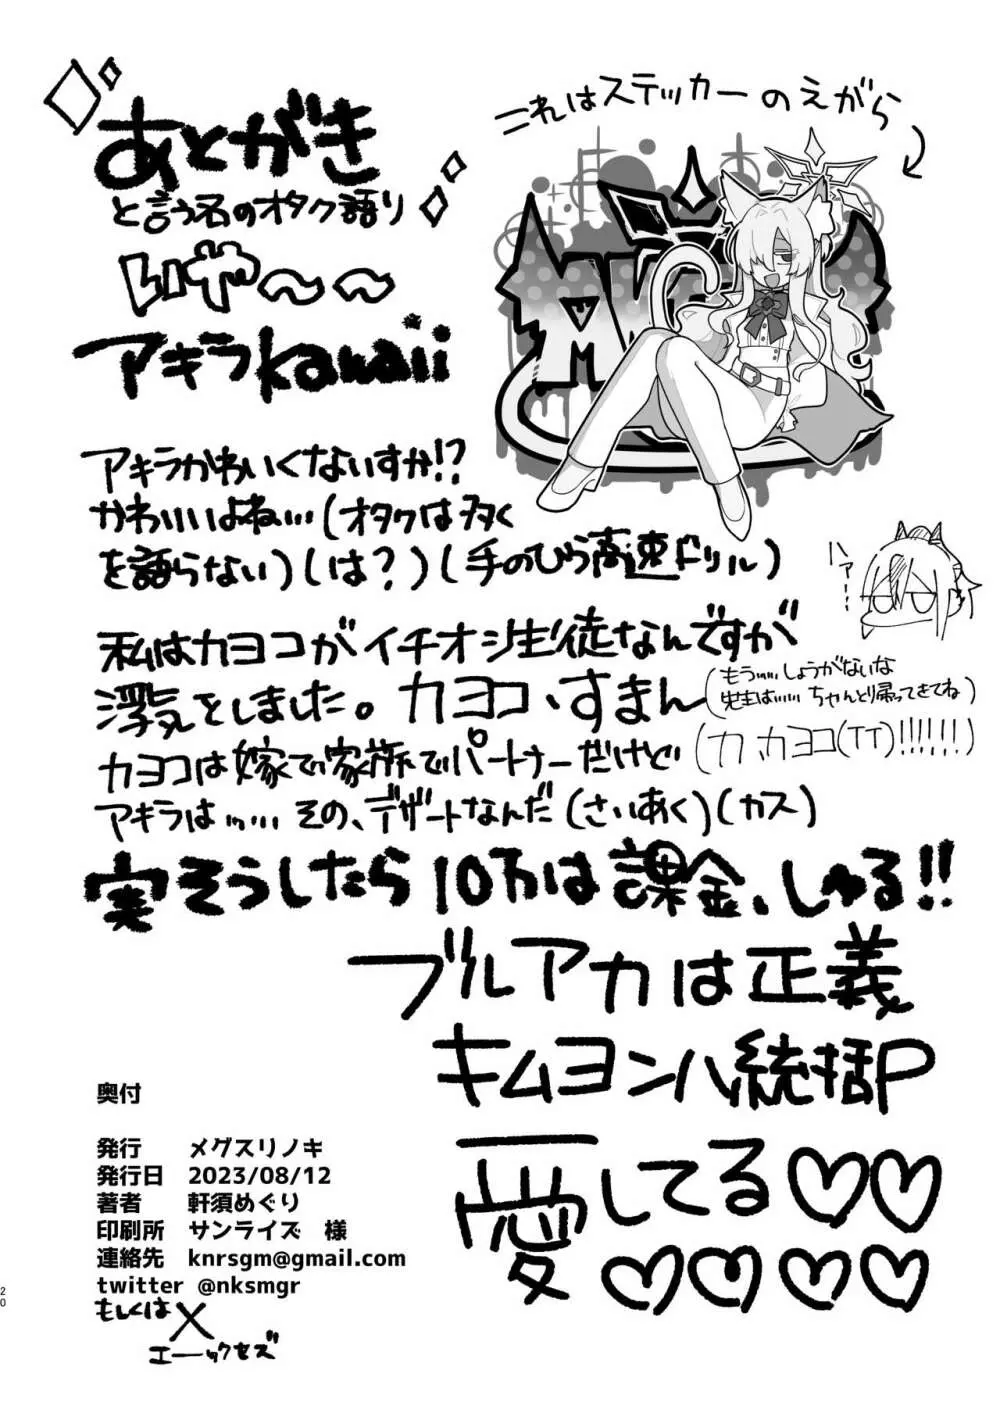 あとがき
と言う名のオタク語り
いや～～
アキラkawaii
これはステッカーのえがら
アキラかわいくないすか!?
かわいいよね…(オタクは多く
を語らない)(は?)(手のひら高速ドリル)
ハァー…
私はカヨコがイチオシ生徒なんですが
浮気をしました。カヨコ、すまん
(もう……しょうがないな
先生は…… ちゃんと帰ってきてね)
カヨコは嫁で家族でパートナーだけど
(カ、カヨコ(TT)!!!!!!)
アキラは…… その、デザートなんだ(さいあく)(カス)
実そうしたら10万は課金、しゅる!!
ブルアカは正義
キムヨンハ統括P
愛してる♡♡
♡♡♡♡
奥付
発行 メグスリノキ
発行日 2023/08/12
著者 軒須めぐり
印刷所 サンライズ 様
連絡先 knrsgm@gmail.com
twitter @nksmgr
もしくは X
エーックセズ
20